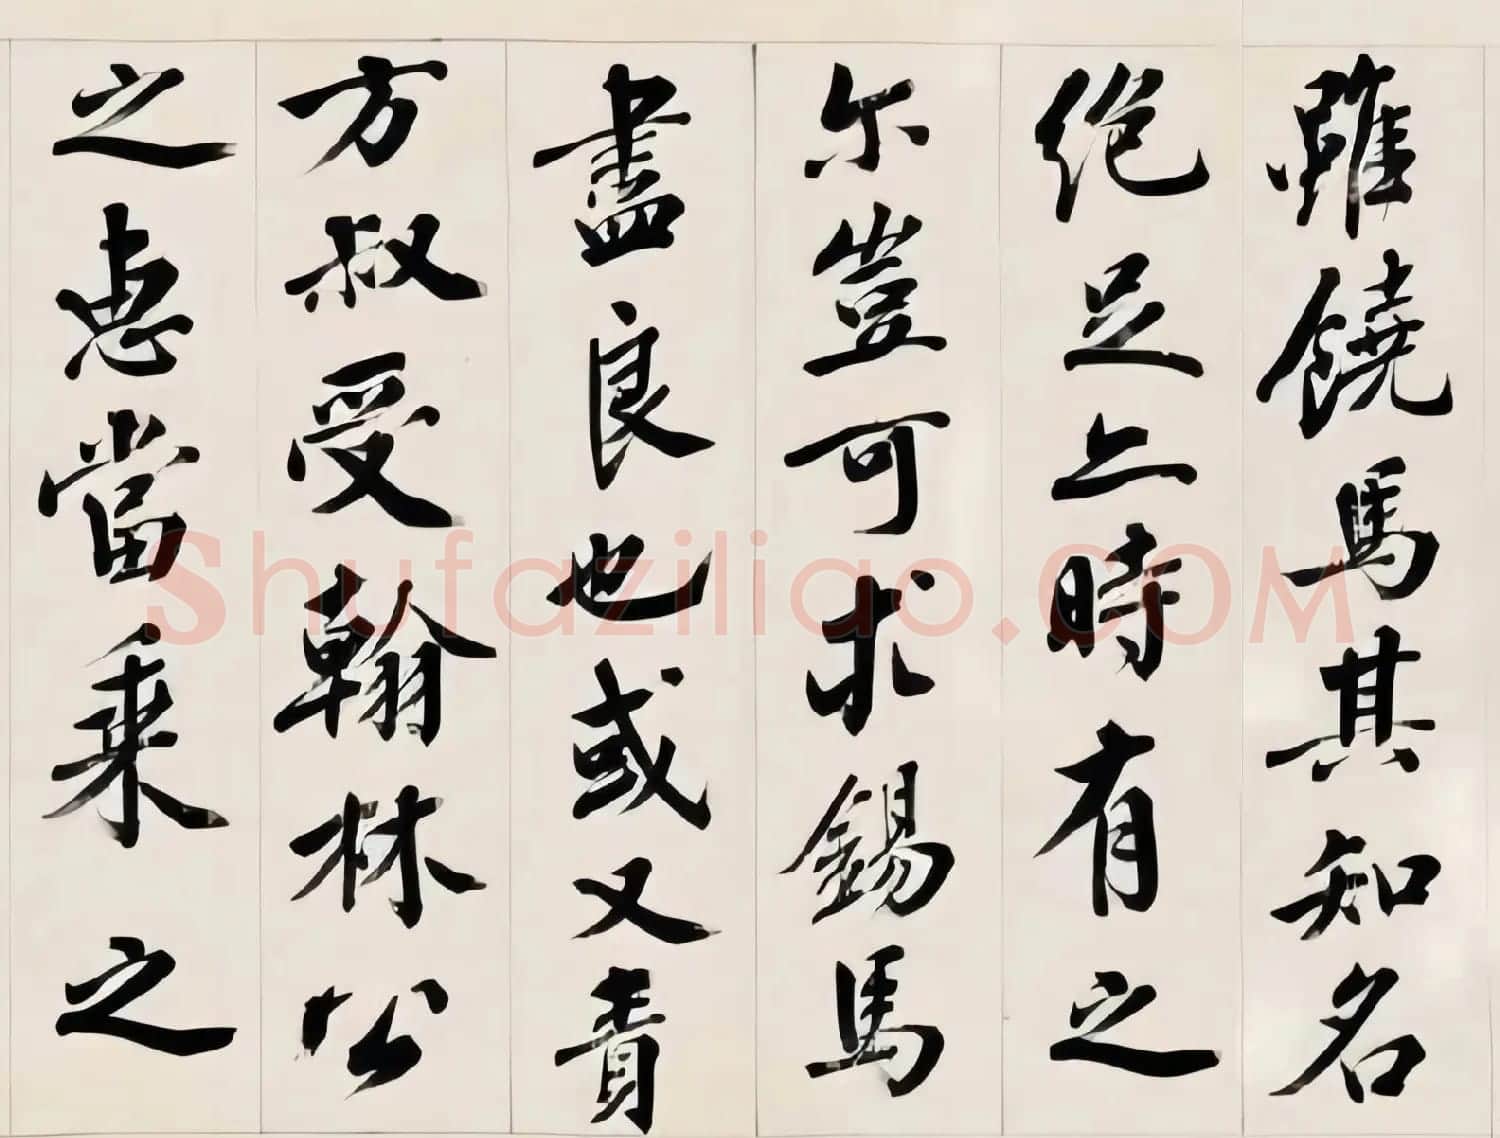 雖饒馬其知名
絶足亦時有之
尔豈可求錫馬
盡良也或又責
方叔受翰林公
之惠當乗之
Shufaziliao.COM